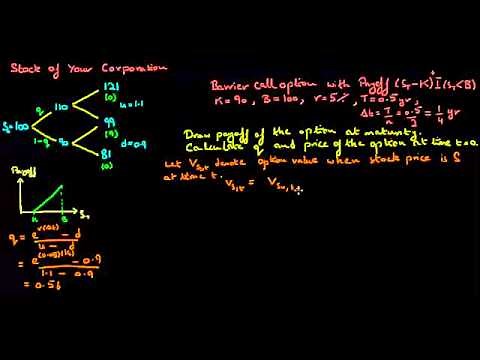 Stock of Your Corporation
121
(0)
110
u = 1.1
q
S₀=100
99
(9)
1-q
90
d = 0.9
81
(0)
Barrier call option with Payoff (S_T - K)⁺ I(S_T < B)
K = 90, B = 100, r = 5%, T = 0.5 yr,
Δt = T/n = 0.5/2 = 1/4 yr
Draw payoff of the option at maturity.
Calculate q and price of the option at time t=0.
Let V_{S,t} denote option value when stock price is S
at time t. V_{S,t} = V_{Su,t+
Payoff
K B S_T
q = (e^{r(Δt)} - d)/(u - d)
= (e^{(0.05)(1/4)} - 0.9)/(1.1 - 0.9)
= 0.56